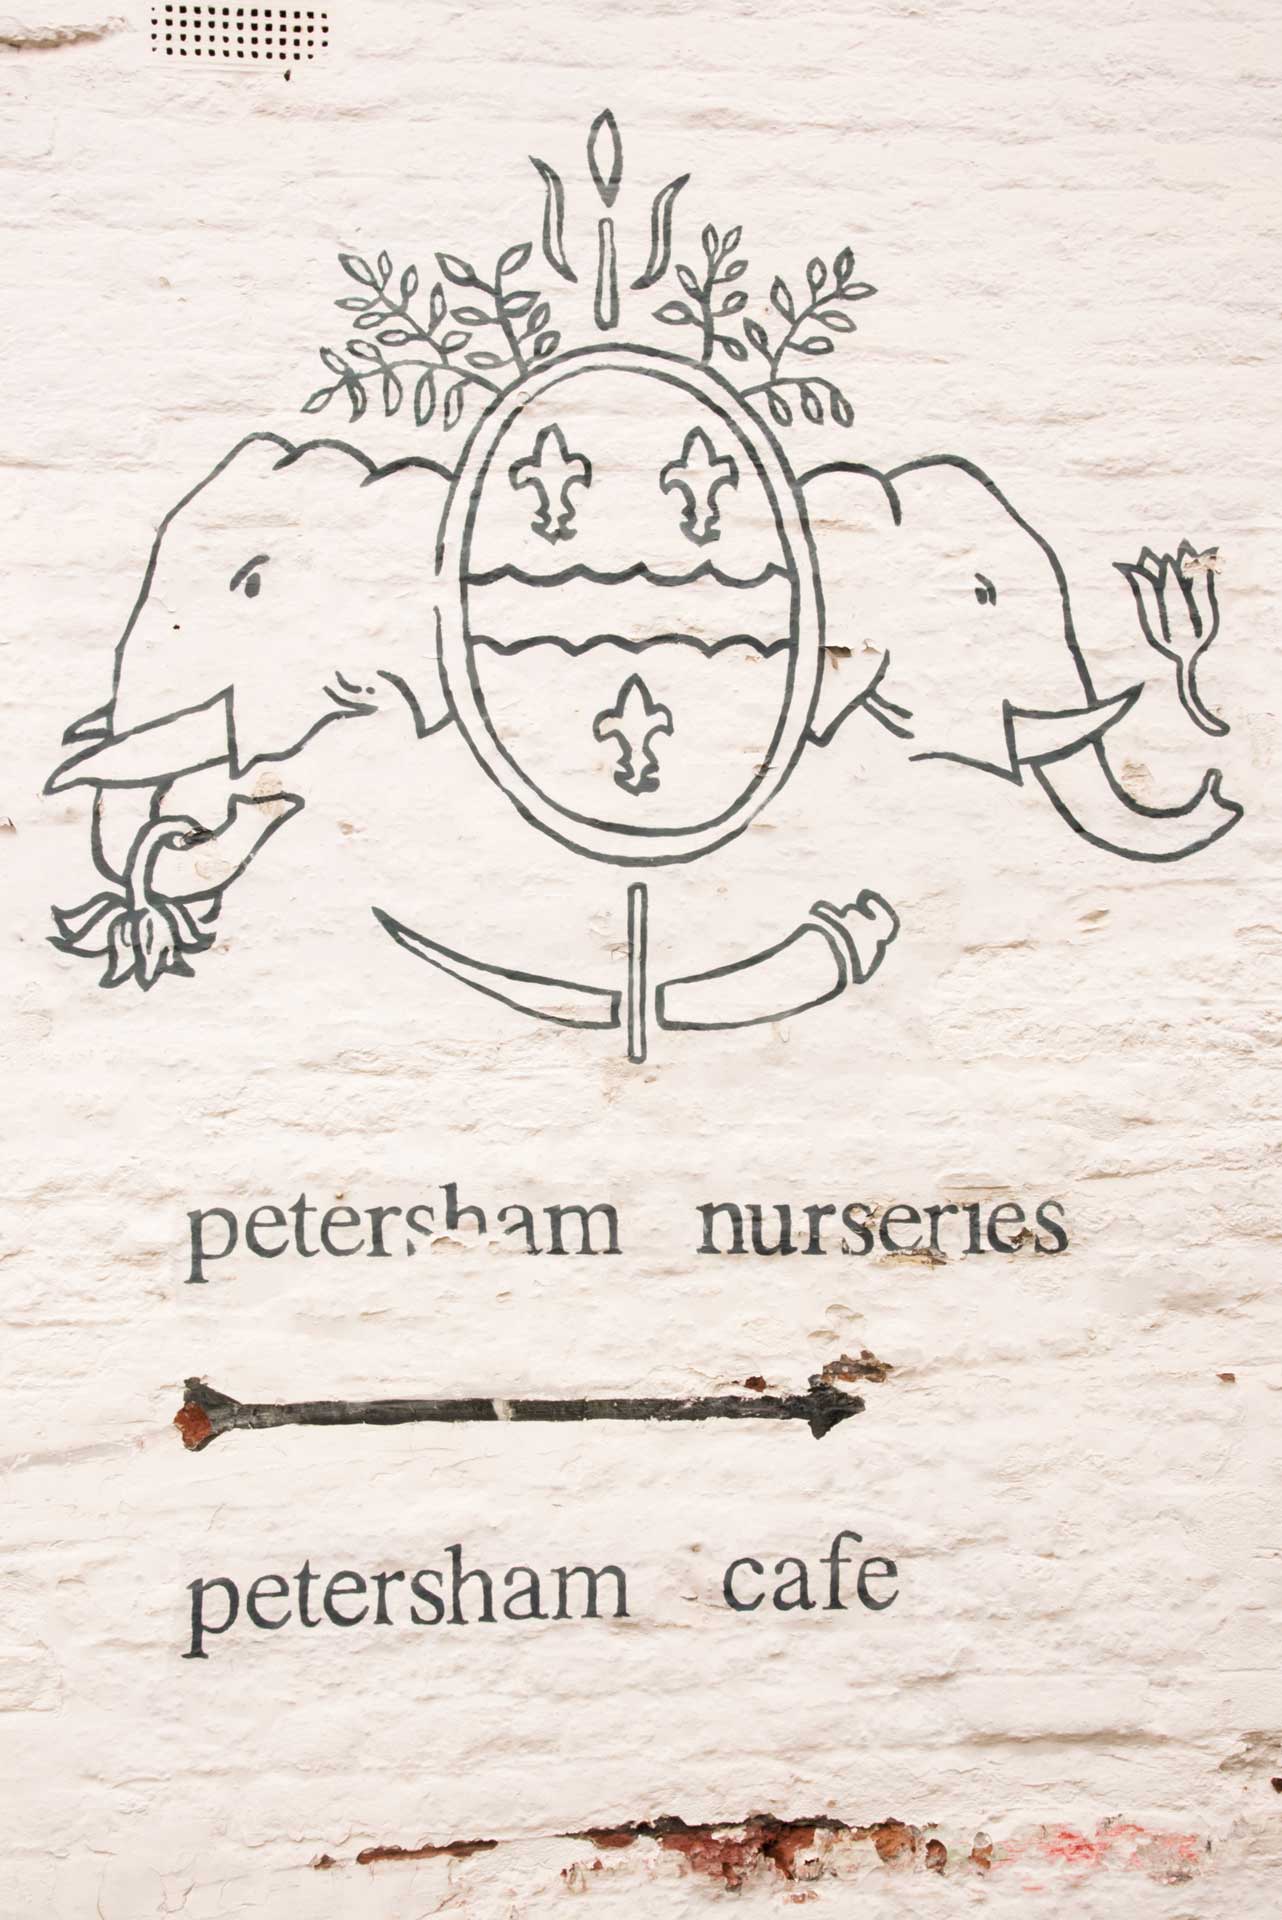 petersham nurseries
petersham cafe